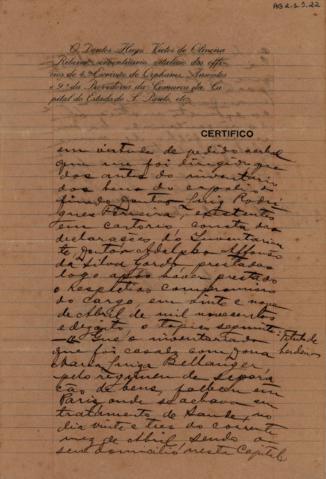 AG 2.1.9.22
O Doutor Hugo Victor de Oliveira
Ribeiro, serventuario vitalicio dos offi-
cios de 4º Escrivão de Orphams, Ausentes
e 9º da Provedoria da Comarca da Ca-
pital do Estado de S. Paulo, etc.
CERTIFICO
em virtude de pedido verbal
que me foi dirigido que
dos autos de inventario
dos bens do espolio do
finado Doutor Luiz Rodri-
gues Ferreira, existentes
em cartorio, consta das
declarações do Inventarian-
te Doutor Adolpho Affonso
da Silva Gordo prestadas
logo após haver prestado
o respectivo compromisso
do cargo, em vinte e nove
de Abril de mil novecentos
e dezoito o topico seguinte:
Titulo de
herdeiros
Que o inventariado
que foi casado com Dona
Maria Luiza Bellanger,
pelo regimen de separa-
ção de bens, falleceu em
Pariz, onde se achava em
tratamento de saude, no
dia vinte e tres do corrente
mez de Abril, sendo o
seu domicilio nesta Capital